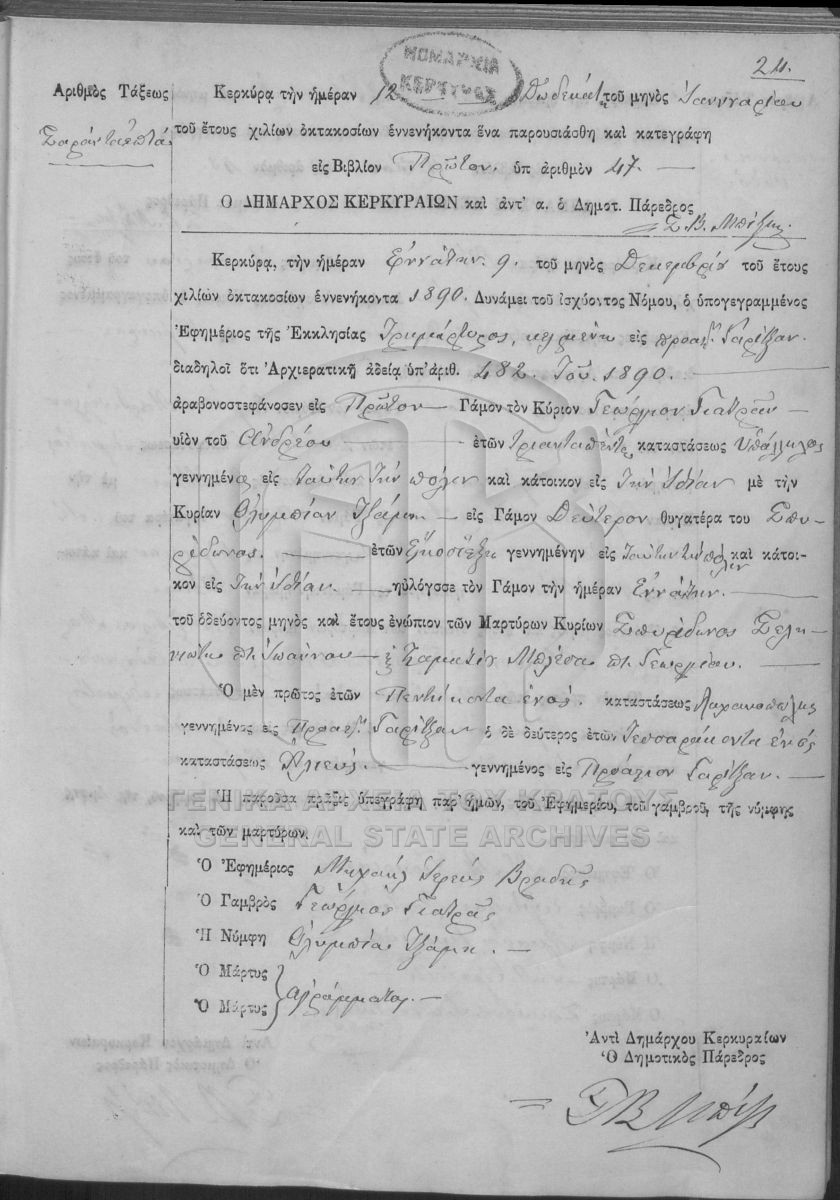 24.
ΝΟΜΑΡΧΙΑ
ΚΕΡΚΥΡΑΣ
Αριθμὸς Τάξεως
Σαράντα ἑπτά
Κερκύρᾳ τὴν ἡμέραν 12 Δωδεκάτ. τοῦ μηνὸς Ἰαννουαρίου
τοῦ ἔτους χιλίων ὀκτακοσίων ἐννενήκοντα ἕνα παρουσιάσθη καὶ κατεγράφη
εἰς Βιβλίον Πρῶτον. ὑπ ἀριθμὸν 47
Ο ΔΗΜΑΡΧΟΣ ΚΕΡΚΥΡΑΙΩΝ καὶ ἀντ' α. ὁ Δημοτ. Πάρεδρος
Σ. Β.
Κερκύρᾳ, τὴν ἡμέραν Ἐννάτην. 9. τοῦ μηνὸς Δεκεμβρίου τοῦ ἔτους
χιλίων ὀκτακοσίων ἐννενήκοντα 1890. Δυνάμει τοῦ ἰσχύοντος Νόμου, ὁ ὑπογεγραμμένος
Ἐφημέριος τῆς Ἐκκλησίας Τριμάρτυρος, κειμένη εἰς προάστ. Γαρίτζαν.
διαδηλοῖ ὅτι Ἀρχιερατικῇ ἀδείᾳ ὑπ' ἀριθ. 482. 1890.
ἀραβονοστεφάνοσεν εἰς Πρῶτον Γάμον τὸν Κύριον Γεώργιον Γιατρᾶν
υἱὸν τοῦ Ἀνδρέου ἐτῶν τριανταπέντε καταστάσεως Ὑπάλληλος
γεννημένον εἰς ταύτην τὴν πόλιν καὶ κάτοικον εἰς τὴν ἰδίαν μὲ τὴν
Κυρίαν Ὀλυμπίαν Τζάμη εἰς Γάμον Δεύτερον θυγατέρα του Σπυ-
ρίδωνος. ἐτῶν εἴκοσιέξη γεννημένην εἰς ταύτην τὴν πόλιν καὶ κάτοι-
κον εἰς τὴν ἰδίαν. ηὐλόγσσε τὸν Γάμον τὴν ἡμέραν Ἐννάτην.
τοῦ ὁδεύοντος μηνὸς καὶ ἔτους ἐνώπιον τῶν Μαρτύρων Κυρίων Σπυρίδωνος
Ἰωάννου Μπλέσα Γεωργίου.
Ὁ μὲν πρῶτος ἐτῶν Πεντήκοντα ἑνός. καταστάσεως Λαχανοπώλης
γεννημένος εἰς Προάστ. Γαρίτζαν ὁ δὲ δεύτερος ἐτῶν Τεσσαράκοντα ἑνός
καταστάσεως Ἁλιεύς. γεννημένος εἰς Προάστιον Γαρίτζαν.
Ἡ παροῦσα πρᾶξις ὑπεγράφη παρ' ἡμῶν, τοῦ Ἐφημερίου, τοῦ γαμβροῦ, τῆς νύμφης
καὶ τῶν μαρτύρων.
ΓΕΝΙΚΑ ΑΡΧΕΙΑ ΤΟΥ ΚΡΑΤΟΥΣ
GENERAL STATE ARCHIVES
Ὁ Ἐφημέριος Μιχαήλ Ἱερεύς Βραδῆς
Ὁ Γαμβρὸς Γεώργιος Γιατρᾶς
Ἡ Νύμφη Ὀλυμπία Τζάμη.
Ὁ Μάρτυς
Ὁ Μάρτυς ἀγράμματοι.
Ἀντὶ Δημάρχου Κερκυραίων
Ὁ Δημοτικὸς Πάρεδρος